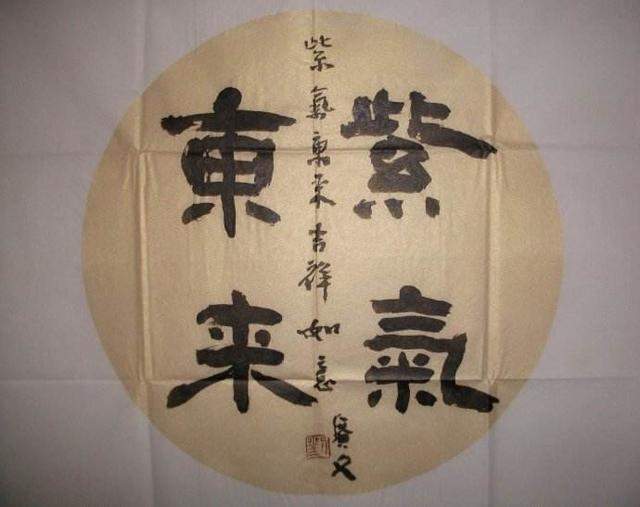 紫氣
東来
紫氣東来吉祥如意